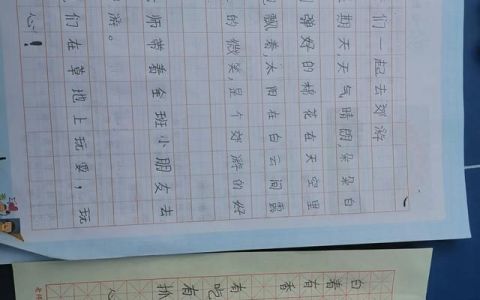 们一起去郊游
期天天气晴朗,朵朵白
弹好的棉花在天空里
飘着,太阳在白云间露
的微笑,是个郊游的好
师带着全班小朋友去
游。
们在草地上玩耍,玩
心!